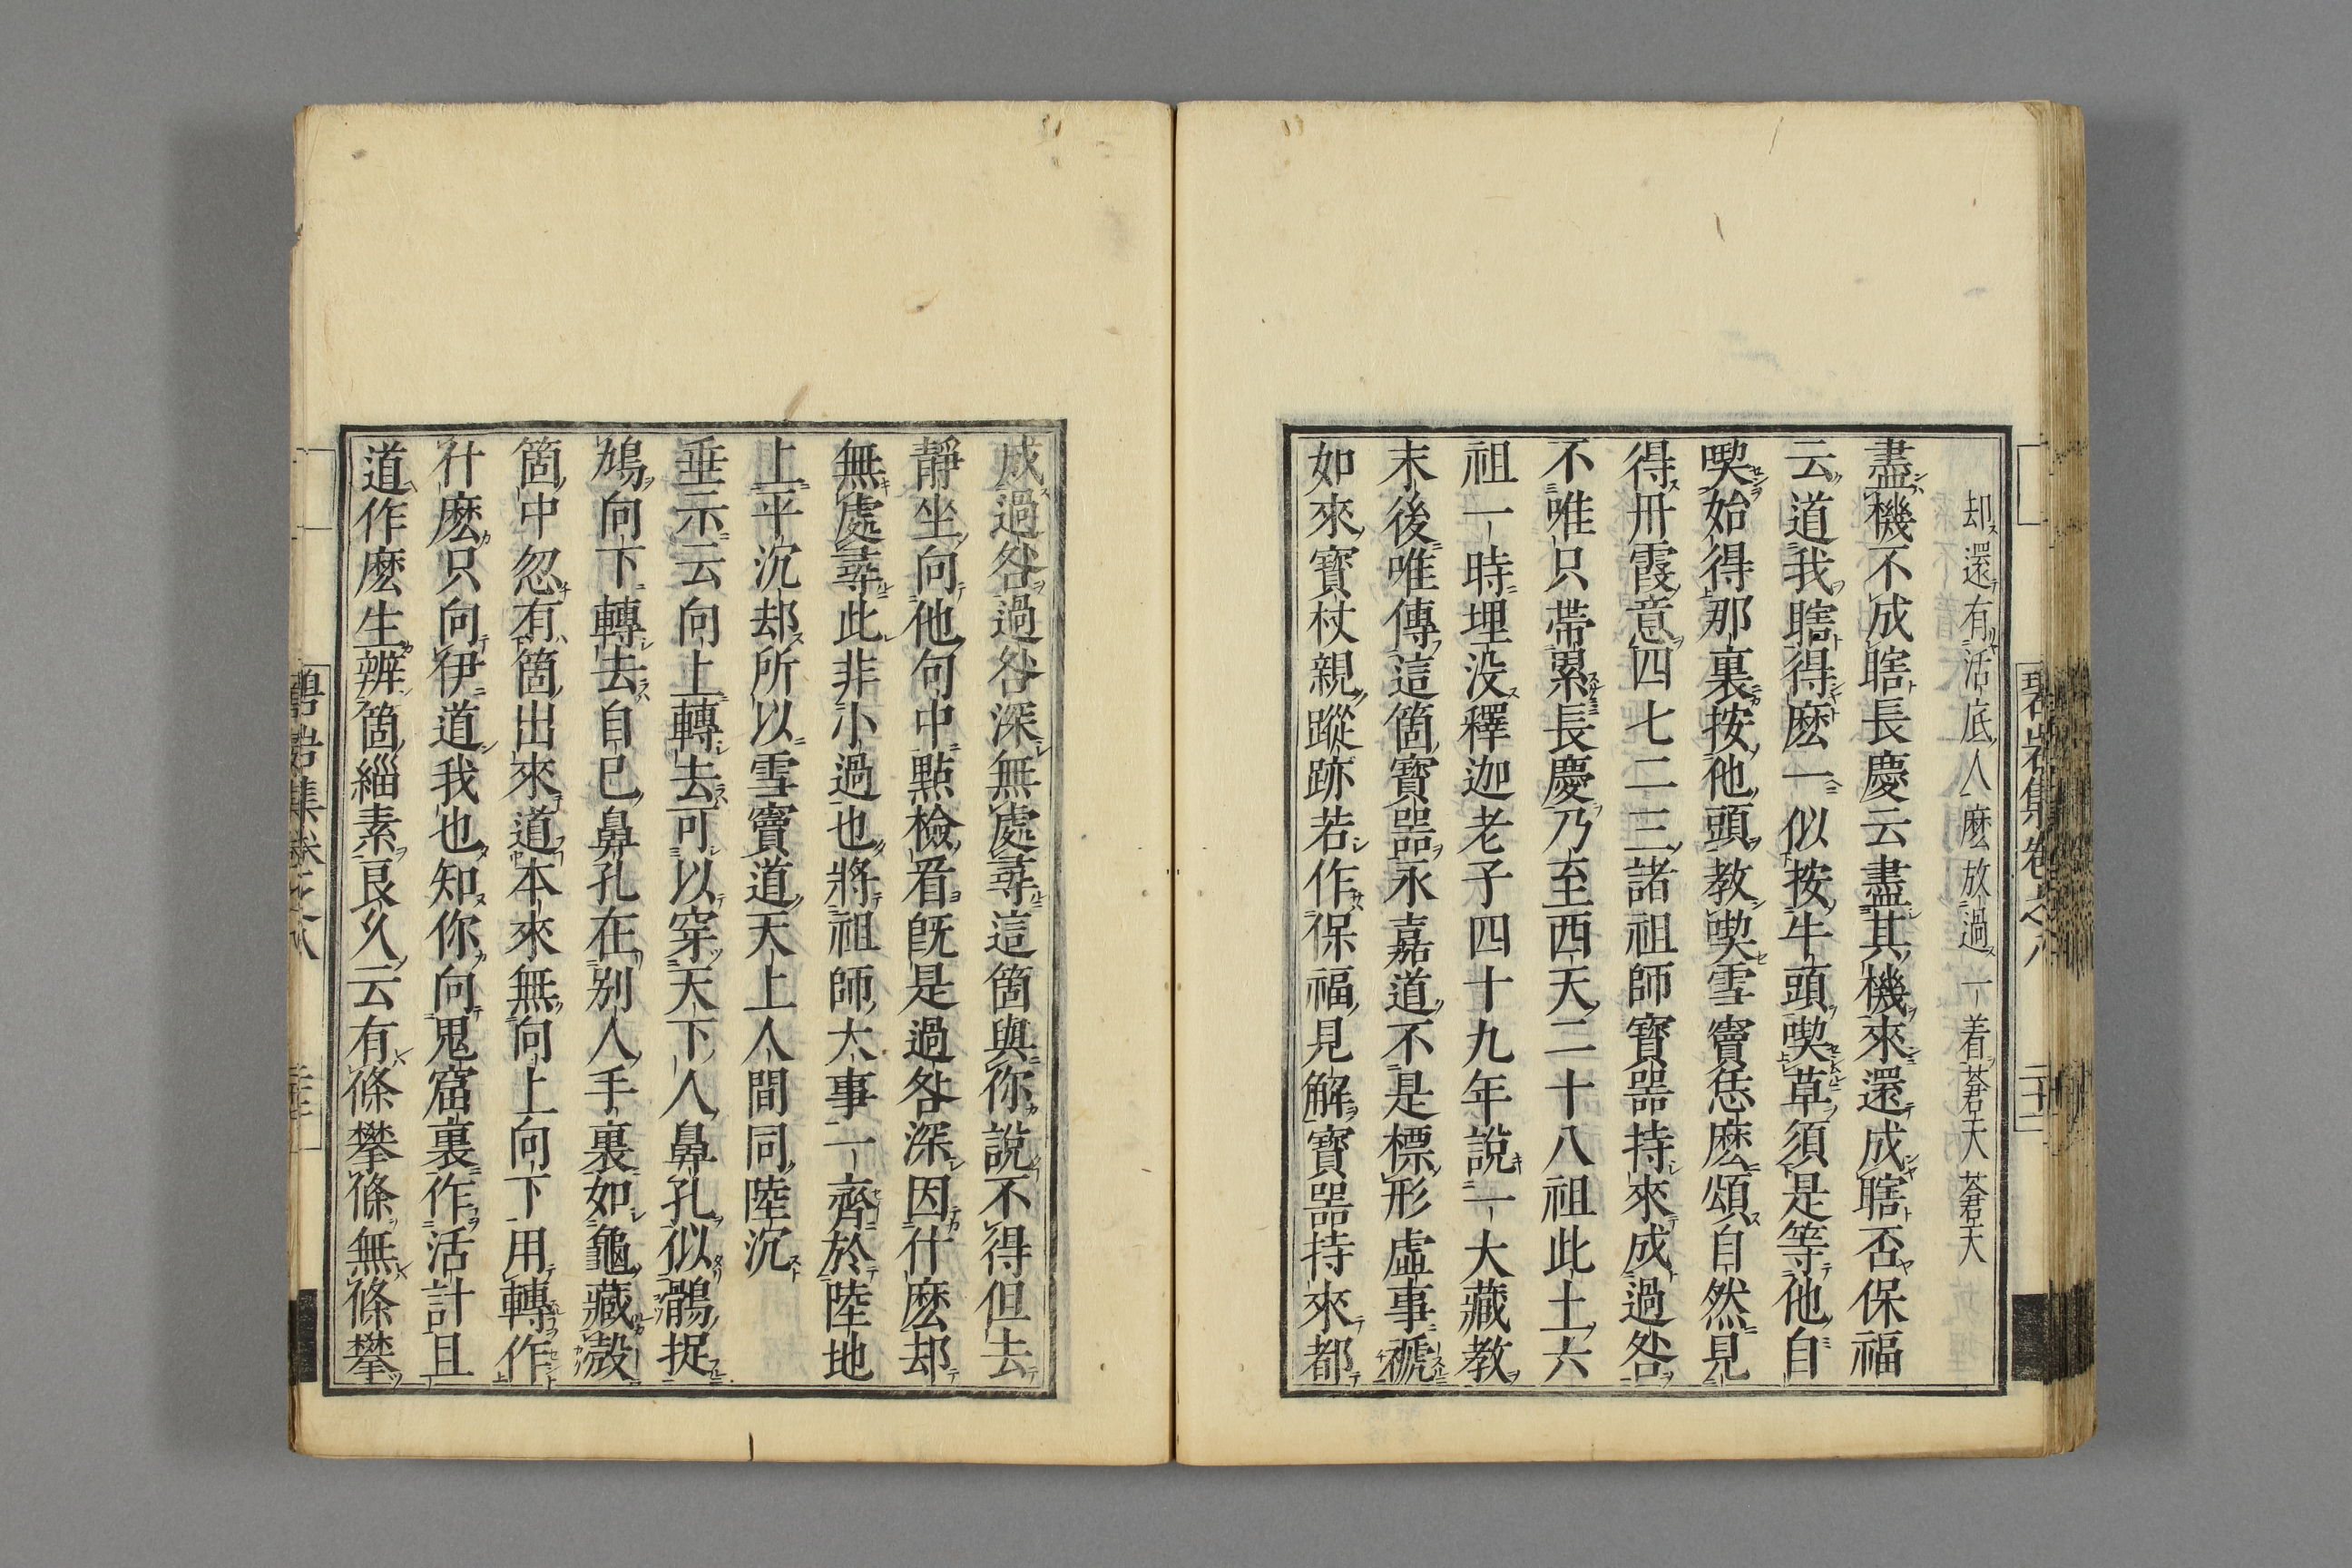 却還有活底人麽放過一着蒼天蒼天
盡機不成瞎長慶云盡其機來還成瞎否保福
云道我瞎得麽一似按牛頭喫草須是等他自
喫始得那裏按他頭教喫雪竇恁麽頌自然見
得丹霞意四七二三諸祖師寶噐持來成過咎
不唯只帶累長慶乃至西天二十八祖此土六
祖一時埋没釋迦老子四十九年說一大藏教
末後唯傳這箇寶噐永嘉道不是標形虛事褫
如來寶杖親蹤跡若作保福見解寶噐持來都
成過咎過咎深無處尋這箇與你說不得但去
靜坐向他句中點檢看旣是過咎深因什麽却
無處尋此非小過也將祖師大事一齊於陸地
上平沉却所以雪竇道天上人間同陸沉
垂示云向上轉去可以穿天下人鼻孔似鶻捉
鳩向下轉去自已鼻孔在别人手裏如龜藏殼
箇中忽有箇出來道本來無向上向下用轉作
什麽只向伊道我也知你向鬼窟裏作活計且
道作麽生辨箇緇素良久云有條攀條無條攀